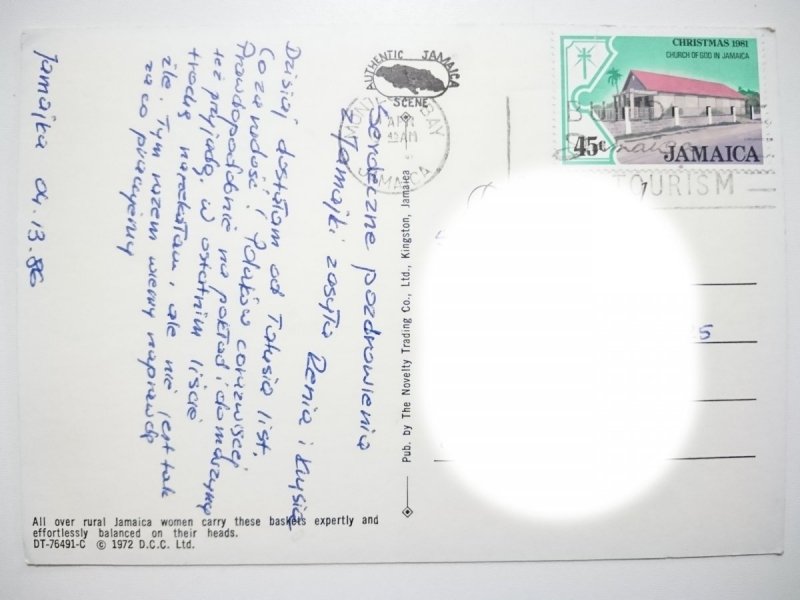 AUTHENTIC JAMAICA
SCENE
MONTEGO BAY
APR
AM
JAMAICA
CHRISTMAS 1981
CHURCH OF GOD IN JAMAICA
45c
JAMAICA
BUILD
Jamaica
TOURISM
Serdeczne pozdrowienia
z Jamajki zasyła Renia i Krysia
Dzisiaj dostałam od Tatusia list.
Co za radość! Polaków coraz więcej
Prawdopodobnie na pokład i do maszyny
też przyjadą. W ostatnim liście
trochę narzekałam, ale nie jest tak
źle. Tym razem wiemy naprawdę
za co pracujemy
Jamajka 04.13.86
Pub. by The Novelty Trading Co., Ltd., Kingston, Jamaica
5
All over rural Jamaica women carry these baskets expertly and
effortlessly balanced on their heads.
DT-76491-C © 1972 D.C.C. Ltd.